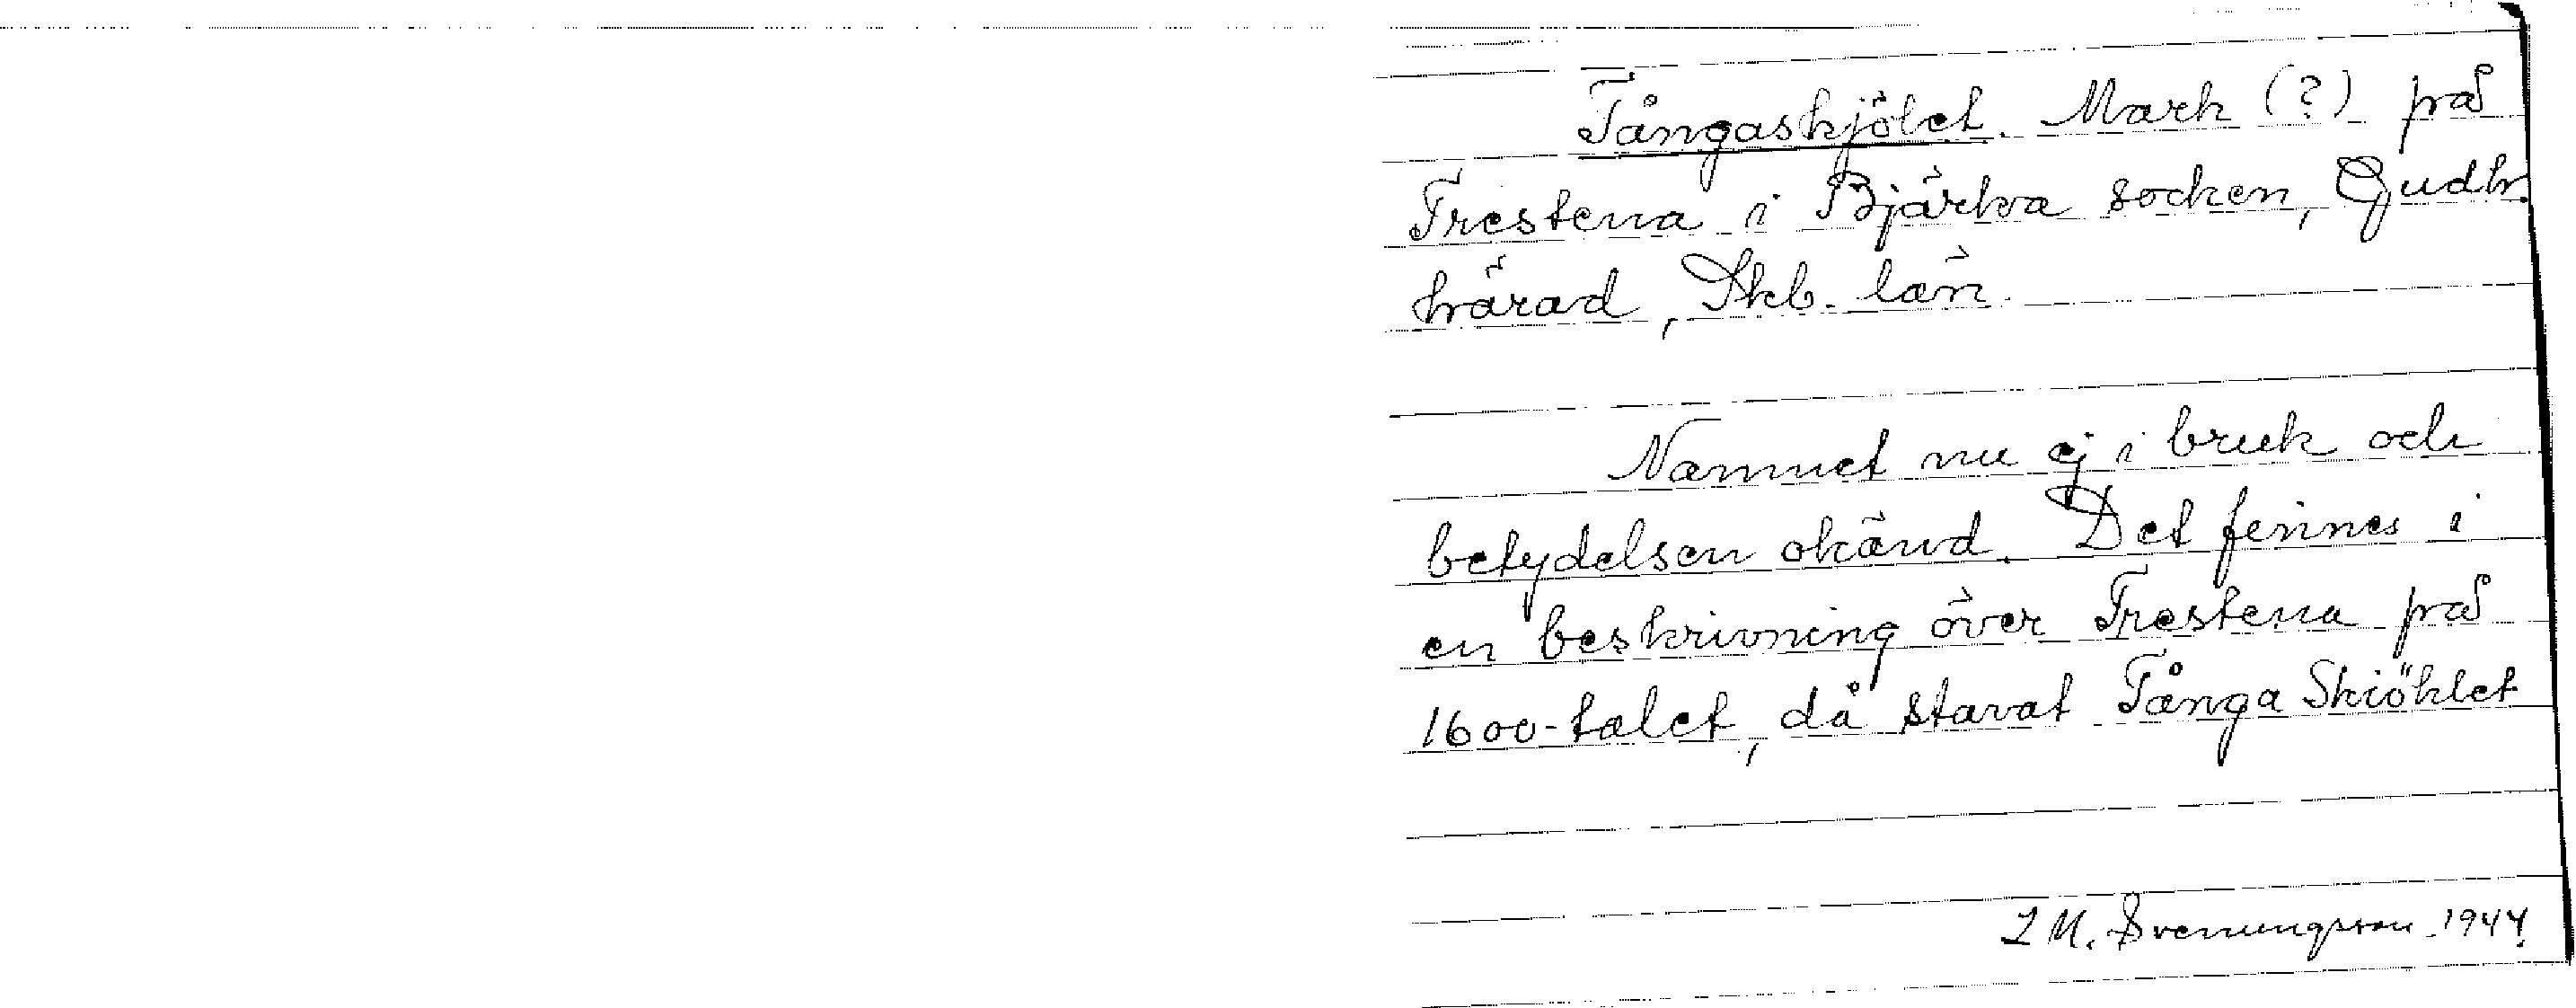 Tångaskjölet. Mark (?) på
Trestena i Bjärka socken, Gudh.
härad, Skb. län.
Namnet nu ej i bruk och
betydelsen okänd. Det finnes i
en beskrivning över Trestena på
1600-talet, då stavat Tånga Skiöhlet
L M. Svenungsson 1944.